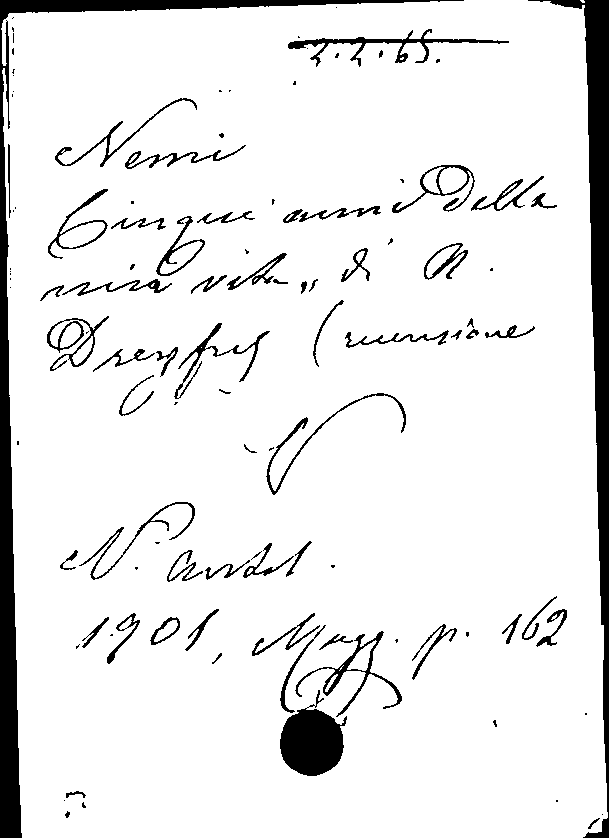 2.2.65.
Nemi
Cinque anni della
mia vita" di A.
Dreyfus (recensione
N. Antol.
1901, Magg. p. 162